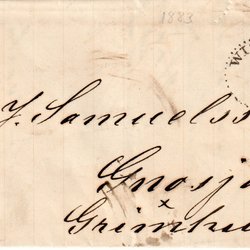 1883
WI
J. Samuelss
Gnosj
x
Grimhu